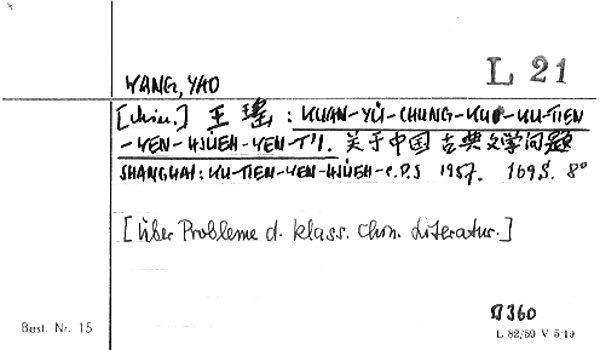 L 21
WANG, YAO
[chin.] 王 瑤 : KUAN-YÜ-CHUNG-KUO-KU-TIEN
-WEN-HSÜEH-WEN-T'I. 关于中国古典文学问题
SHANGHAI: KU-TIEN-WEN-HSÜEH-C.P.S 1957. 169 S. 8°
[Über Probleme d. klass. Chin. Literatur.]
360
Best. Nr. 15
L 82/59 V 5/19